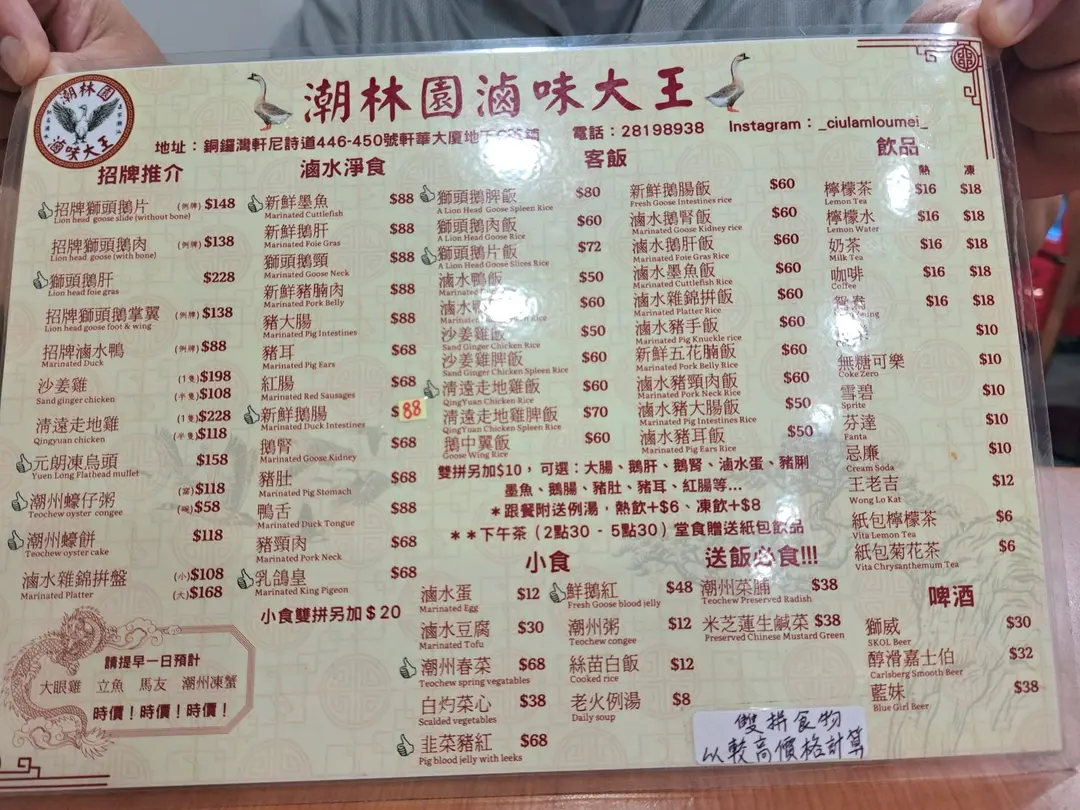 潮林園
滷味大王
潮林園滷味大王
地址：銅鑼灣軒尼詩道446-450號軒華大廈地下
電話：28198938
Instagram：_ciulamloumei_
招牌推介
招牌獅頭鵝片 (例牌) $148
Lion head goose slide (without bone)
招牌獅頭鵝肉 (例牌) $138
Lion head goose (with bone)
獅頭鵝肝 $228
Lion head foie gras
招牌獅頭鵝掌翼 (例牌) $138
Lion head goose foot & wing
招牌滷水鴨 (例牌) $88
Marinated Duck
沙姜雞 (1隻) $198
Sand ginger chicken (半隻) $108
清遠走地雞 (1隻) $228
Qingyuan chicken (半隻) $118
元朗凍烏頭 $158
Yuen Long Flathead mullet
潮州蠔仔粥 (窩) $118
Teochew oyster congee (碗) $58
潮州蠔餅 $118
Teochew oyster cake
滷水雜錦拼盤 (小) $108
Marinated Platter (大) $168
請提早一日預計
大眼雞 立魚 馬友 潮州凍蟹
時價！時價！時價！
滷水淨食
新鮮墨魚 $88
Marinated Cuttlefish
新鮮鵝肝 $88
Marinated Foie Gras
獅頭鵝頸 $88
Marinated Goose Neck
新鮮豬腩肉 $88
Marinated Pork Belly
豬大腸 $88
Marinated Pig Intestines
豬耳 $68
Marinated Pig Ears
紅腸 $68
Marinated Red Sausages
新鮮鵝腸 $88
Marinated Duck Intestines
鵝腎 $68
Marinated Goose Kidney
豬肚 $88
Marinated Pig Stomach
鴨舌 $88
Marinated Duck Tongue
豬頸肉 $68
Marinated Pork Neck
乳鴿皇 $68
Marinated King Pigeon
小食雙拼另加＄20
客飯
獅頭鵝脾飯 $80
A Lion Head Goose Spleen Rice
獅頭鵝肉飯 $60
A Lion Head Goose Rice
獅頭鵝片飯 $72
A Lion Head Goose Slices Rice
滷水鴨飯 $50
Marinated
滷水鴨 $60
Marinated
沙姜雞飯 $50
Sand Ginger Chicken Rice
沙姜雞脾飯 $60
Sand Ginger Chicken Spleen Rice
清遠走地雞飯 $60
QingYuan Chicken Rice
清遠走地雞脾飯 $70
QingYuan Chicken Spleen Rice
鵝中翼飯 $60
Goose Wing Rice
新鮮鵝腸飯 $60
Fresh Goose Intestines rice
滷水鵝腎飯 $60
Marinated Goose Kidney rice
滷水鵝肝飯 $60
Marinated Foie Gras Rice
滷水墨魚飯 $60
Marinated Cuttlefish Rice
滷水雜錦拼飯 $60
Marinated Platter Rice
滷水豬手飯 $60
Marinated Pig Knuckle rice
新鮮五花腩飯 $60
Marinated Pork Belly Rice
滷水豬頸肉飯 $60
Marinated Pork Neck Rice
滷水豬大腸飯 $50
Marinated Pig Intestines Rice
滷水豬耳飯 $50
Marinated Pig Ears Rice
雙拼另加$10，可選：大腸、鵝肝、鵝腎、滷水蛋、豬脷
墨魚、鵝腸、豬肚、豬耳、紅腸等...
＊跟餐附送例湯，熱飲+$6、凍飲+$8
＊＊下午茶（2點30 - 5點30）堂食贈送紙包飲品
小食
滷水蛋 $12
Marinated Egg
滷水豆腐 $30
Marinated Tofu
潮州春菜 $68
Teochew spring vegatables
白灼菜心 $38
Scalded vegetables
韭菜豬紅 $68
Pig blood jelly with leeks
鮮鵝紅 $48
Fresh Goose blood jelly
潮州粥 $12
Teochew congee
絲苗白飯 $12
Cooked rice
老火例湯 $8
Daily soup
送飯必食!!!
潮州菜脯 $38
Teochew Preserved Radish
米芝蓮生鹹菜 $38
Preserved Chinese Mustard Green
雙拼食物
以較高價格計算
飲品
熱 凍
檸檬茶 $16 $18
Lemon Tea
檸檬水 $16 $18
Lemon Water
奶茶 $16 $18
Milk Tea
咖啡 $16 $18
Coffee
鴛鴦 $16 $18
$10
無糖可樂 $10
Coke Zero
雪碧 $10
Sprite
芬達 $10
Fanta
忌廉 $10
Cream Soda
王老吉 $12
Wong Lo Kat
紙包檸檬茶 $6
Vita Lemon Tea
紙包菊花茶 $6
Vita Chrysanthemum Tea
啤酒
獅威 $30
SKOL Beer
醇滑嘉士伯 $32
Carlsberg Smooth Beer
藍妹 $38
Blue Girl Beer